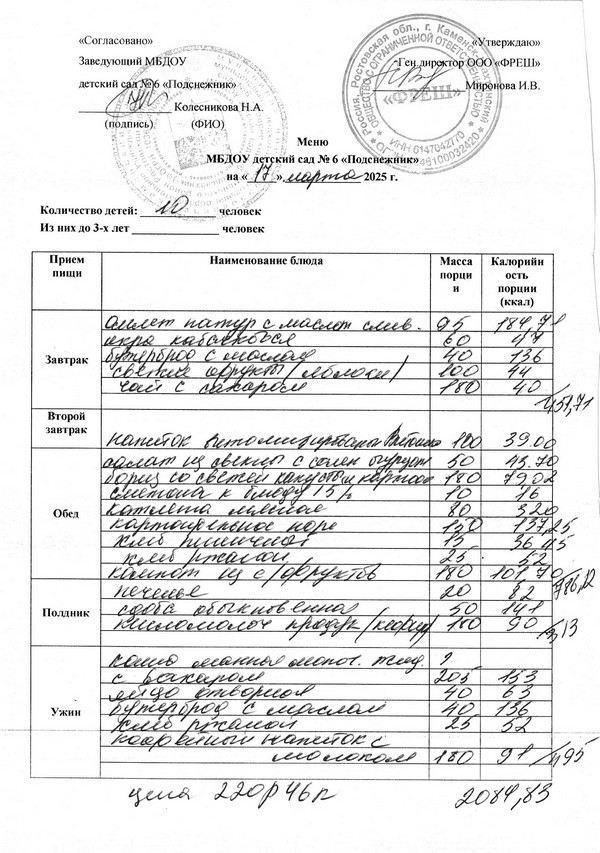 «Согласовано» «Утверждаю»
Заведующий МБДОУ Ген директор ООО «ФРЕШ»
детский сад № 6 «Подснежник» Миронова И.В.
Колесникова Н.А.
(подпись) (ФИО)
Россия, Ростовская обл., г. Каменск-Шахтинский
ОБЩЕСТВО С ОГРАНИЧЕННОЙ ОТВЕТСТВЕННОСТЬЮ
«ФРЕШ»
ИНН 6147042770
Меню
МБДОУ детский сад № 6 «Подснежник»
на « 17 » марта 2025 г.
Количество детей: 10 человек
Из них до 3-х лет человек
Прием пищи Наименование блюда Масса порции Калорийность порции (ккал)
Завтрак
омлет натур с маслом слив. 95 184,71
икра кабачковая 60 47
бутерброд с маслом 40 136
свежие фрукты /яблоки/ 100 44
чай с сахаром 180 40
451,71
Второй завтрак
напиток Витошка 180 39.00
Обед
салат из свеклы с солен огурцом 50 43.70
борщ со свежей капусты и картоф 180 79,02
сметана к блюду 15% 10 16
котлета мясная 80 320
картофельное пюре 150 137,25
хлеб пшеничный 15 36,45
хлеб ржаной 25 52
компот из с/фруктов 180 101,70
786,12
Полдник
печенье 20 82
сдоба обыкновенная 50 141
кисломолоч продукт /кефир/ 180 90
313
Ужин
каша манная молоч. жид.
с сахаром 205 153
яйцо отварное 40 63
бутерброд с маслом 40 136
хлеб ржаной 25 52
кофейный напиток с
молоком 180 91
495
цена 220р 46к 2084,83